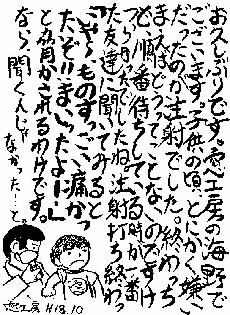 お久しぶりです。窓工房の海野で
ございます。子供の頃、とにかく嫌い
だったのが注射でした。終わっち
まえばどうってことないのですけ
ど、順番待ちしてる時が一番
つらいんでしたね。注射打ち終わっ
た友達に聞いてみると
「いやぁ、ものすっごい痛かっ
たぞ！！まいったよに！」
と脅かされるわけです。
なら聞くんじゃ
なかった…と。
窓工房 H18.10